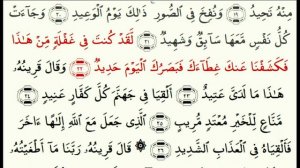 مِنْهُ تَحِيدُ ١٩ وَنُفِخَ فِي الصُّورِ ذَٰلِكَ يَوْمُ الْوَعِيدِ ٢٠ وَجَاءَتْ
كُلُّ نَفْسٍ مَّعَهَا سَائِقٌ وَشَهِيدٌ ٢١ لَّقَدْ كُنتَ فِي غَفْلَةٍ مِّنْ هَٰذَا
فَكَشَفْنَا عَنكَ غِطَاءَكَ فَبَصَرُكَ الْيَوْمَ حَدِيدٌ ٢٢ وَقَالَ قَرِينُهُ
هَٰذَا مَا لَدَيَّ عَتِيدٌ ٢٣ أَلْقِيَا فِي جَهَنَّمَ كُلَّ كَفَّارٍ عَنِيدٍ ٢٤
مَّنَّاعٍ لِّلْخَيْرِ مُعْتَدٍ مُّرِيبٍ ٢٥ الَّذِي جَعَلَ مَعَ اللَّهِ إِلَٰهًا آخَرَ
فَأَلْقِيَاهُ فِي الْعَذَابِ الشَّدِيدِ ٢٦ ۞ قَالَ قَرِينُهُ رَبَّنَا مَا أَطْغَيْتُهُ